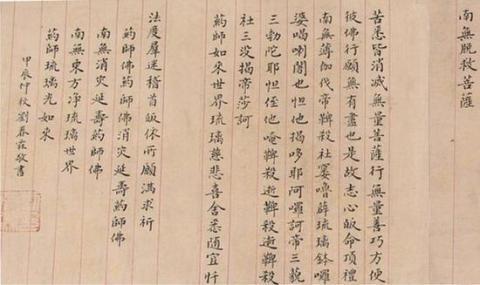 南無脫救菩薩
苦悉皆消滅無量菩薩行無量善巧方便
彼佛行願無有盡也是故志心皈命頂禮
南無薄伽伐帝鞞殺社窶嚕薜琉璃鉢囉
婆喝喇闍也怛他揭哆耶阿囉訶帝三藐
三勃陀耶怛侄他唵鞞殺逝鞞殺逝鞞殺
社三没揭帝莎訶
藥師如來世界琉璃慈悲喜舍悉随宜忏
法度羣迷稽首皈依所願满求祈
藥師佛藥師佛消灾延壽藥師佛
南無消灾延壽藥師佛
南無東方净琉璃世界
藥師琉璃光如來
甲辰仲秋劉春霖敬書